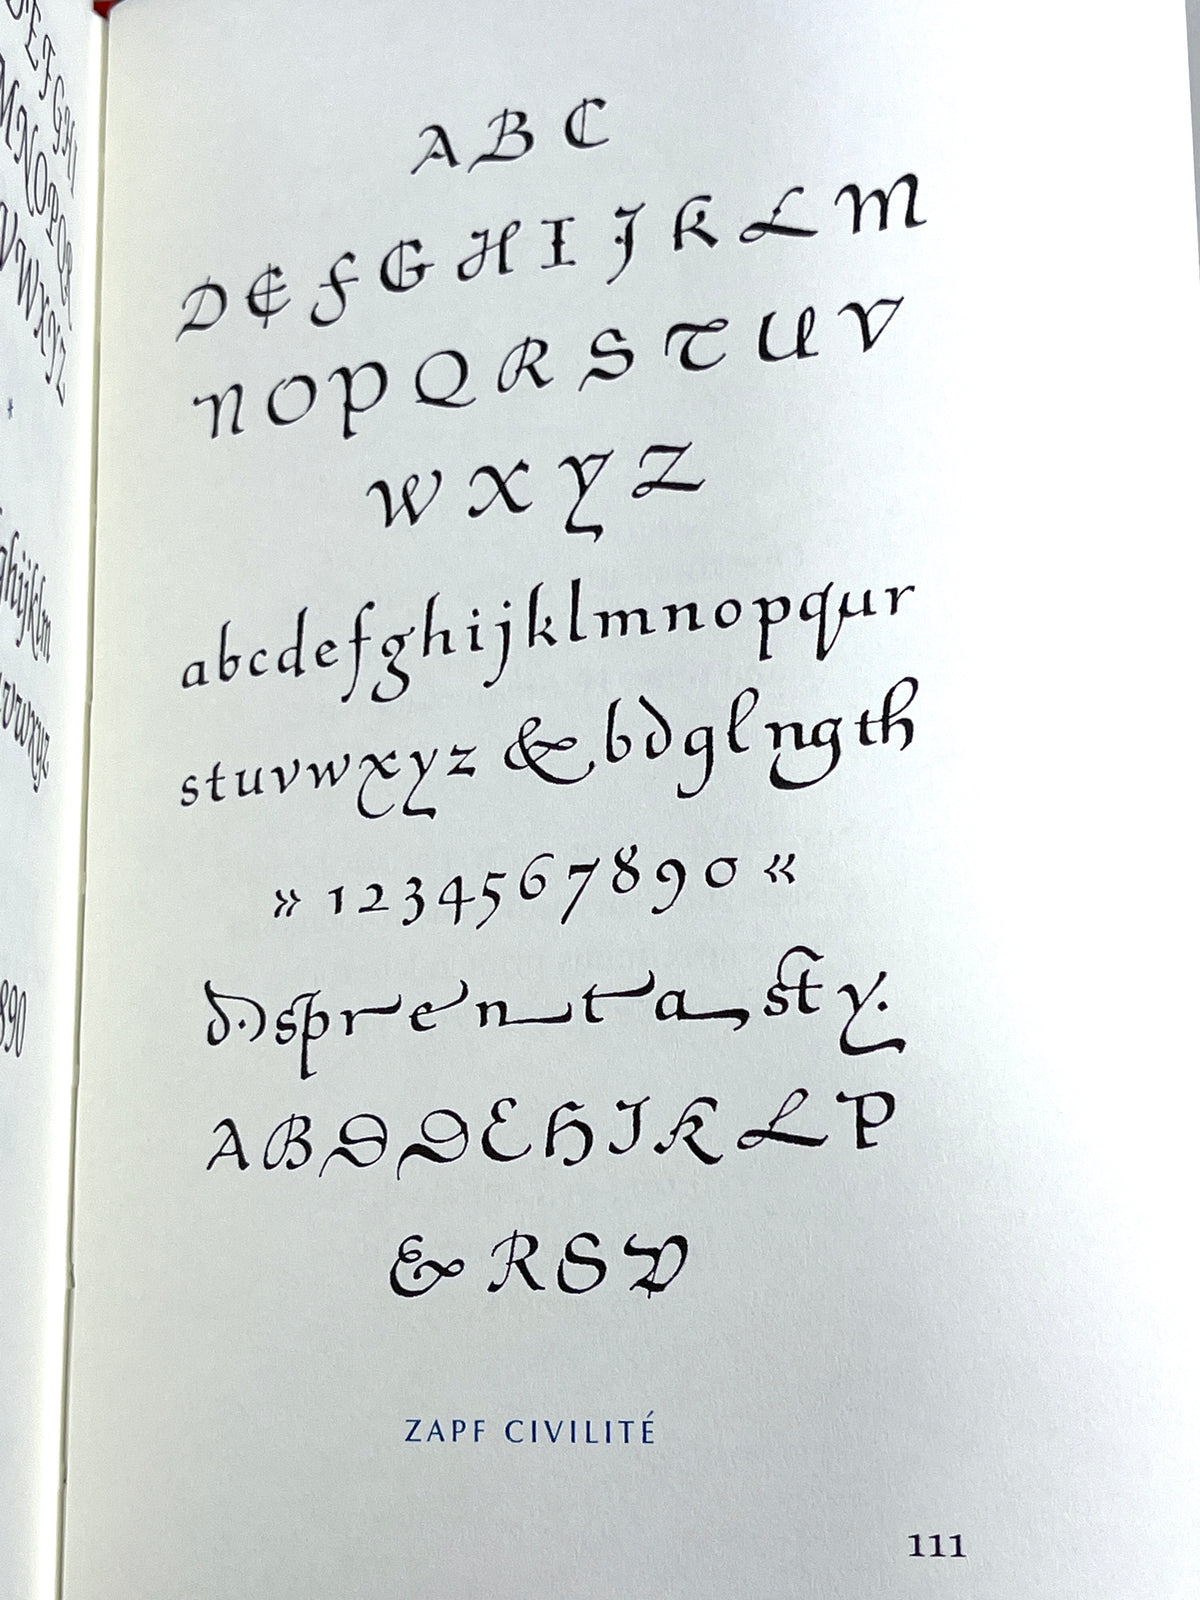 A B C
D E F G H I J K L M
N O P Q R S T U V
W X Y Z
abcdefghijklmnopqur
stuvwxyz & bdglngth
» 1234567890 «
d.) sp r e n t a st y.
A B D D E H J K L P
& R S V
ZAPF CIVILITÉ
111